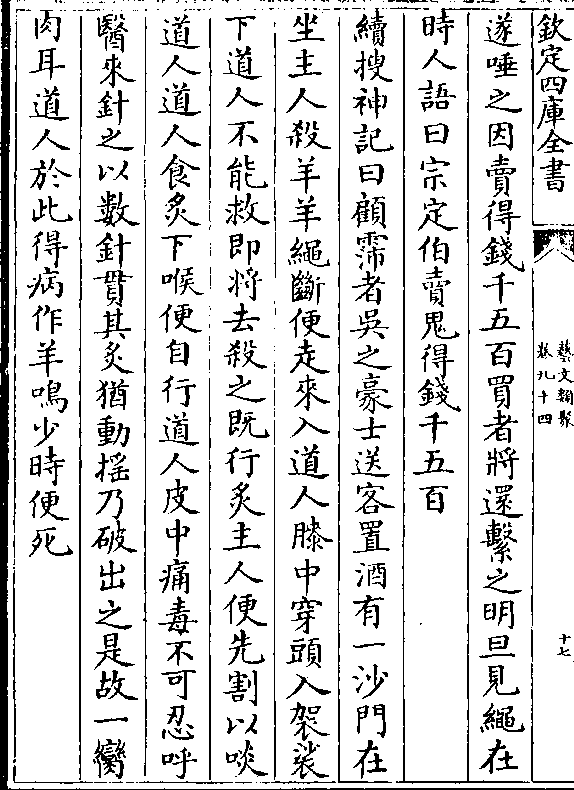 欽定四庫全書
藝文類聚
卷九十四
十七
遂唾之因賣得錢千五百買者將還繫之明旦見繩在
時人語曰宗定伯賣鬼得錢千五百
續搜神記曰顧霈者吳之豪士送客置酒有一沙門在
坐主人殺羊羊繩斷便走來入道人膝中穿頭入袈裟
下道人不能救即將去殺之既行炙主人便先割以啖
道人道人食炙下喉便自行道人皮中痛毒不可忍呼
醫來針之以數針貫其炙猶動搖乃破出之是故一臠
肉耳道人於此得病作羊鳴少時便死